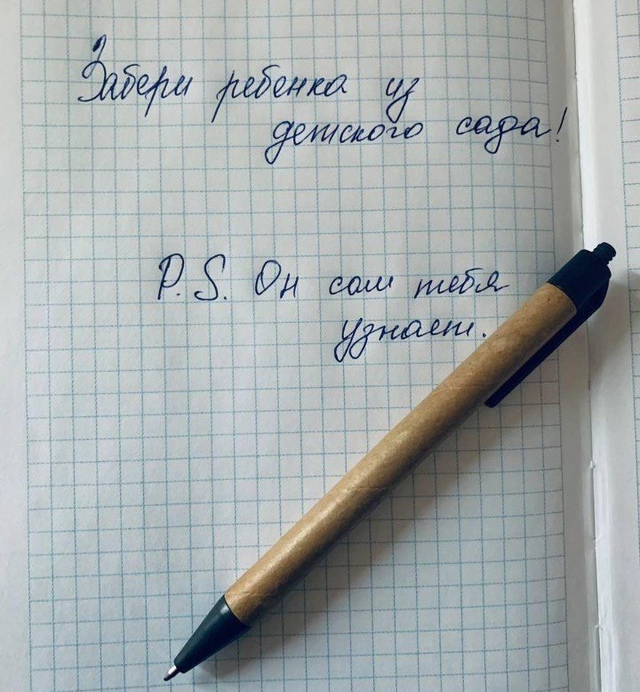 Забери ребенка из
детского сада!
P.S. Он сам тебя
узнает.